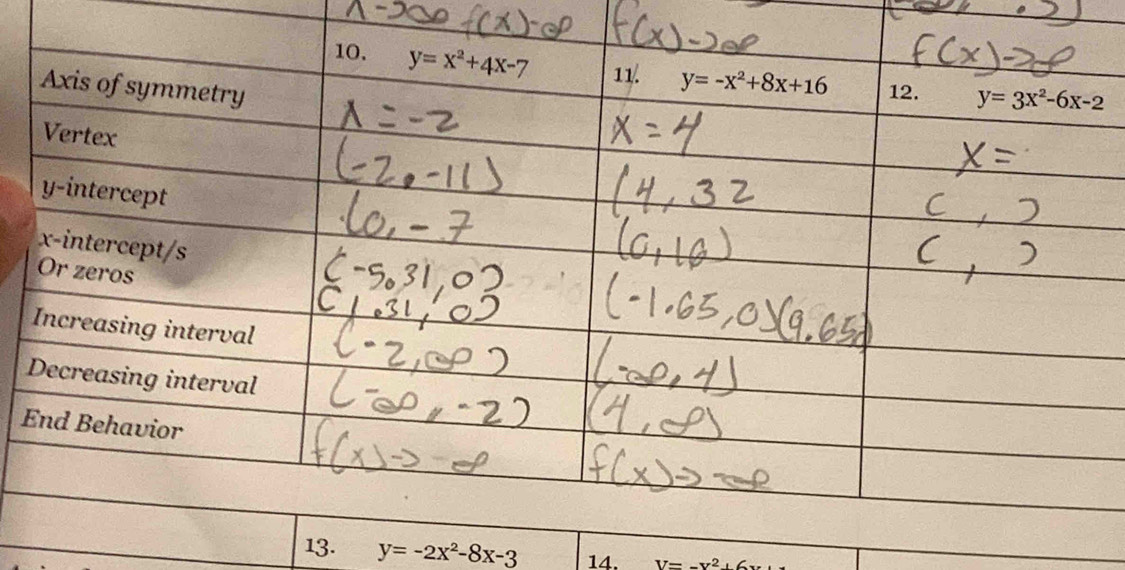 f(x)→∞ f(x)→∞
10. y= x²+4x-7 11. y= -x²+8x+16 12. y= 3x²-6x-2
Axis of symmetry x = -2 x = 4 x =
Vertex (-2, -11) (4, 32 ( , )
y-intercept (0, -7 (0, 16) ( , )
x-intercept/s (-5.31, 0)
Or zeros (1.31, 0) (-1.65, 0)(9.65,
Increasing interval (-2, ∞) (-∞, 4)
Decreasing interval (-∞, -2) (4, ∞)
End Behavior f(x)→-∞ f(x)→-∞
13. y= -2x²-8x-3 14.